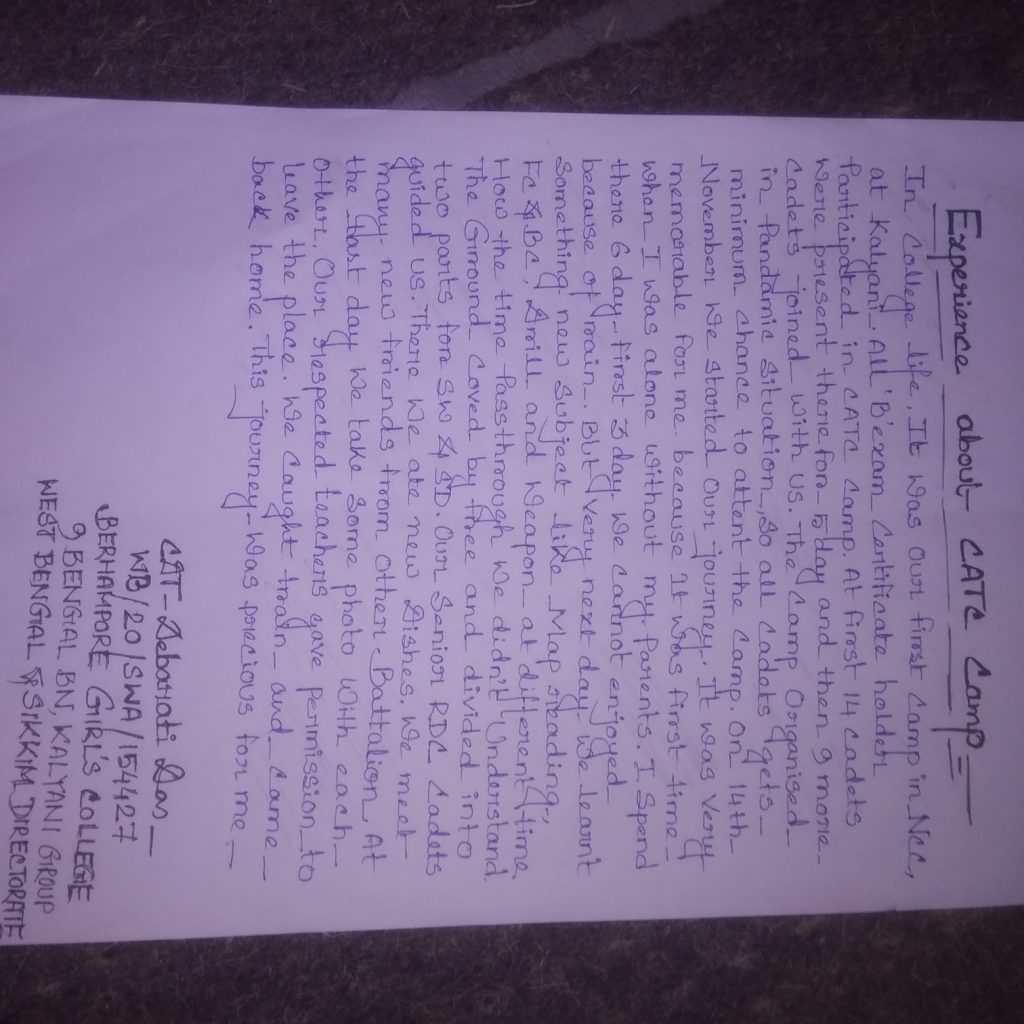 Experience about CATC Camp =
In College life, It was our first Camp in Ncc,
at Kalyani. All 'B' exam Certificate holder
Participated in CATC Camp. At first 14 cadets
Were present there for 5 day and then 9 more
Cadets joined with us. The Camp Organised
in Pandamic situation, So all Cadets gets
minimum chance to attent the Camp. On 14th
November We started our journey. It was very
memorable for me because It was first time
when I was alone without my Parents. I Spend
there 6 day. First 3 day we cannot enjoyed
because of rain. But very next day we learnt
Something new Subject like Map reading,
Fc & Bc, Drill and Weapon at different time.
How the time Passthrough We didn't Understand.
The Ground Coved by three and divided into
two parts for SW & SD. Our Senior RDC Cadets
guided us. There We ate new Dishes. We meet
many new friends from other Battalion. At
the last day We take Some photo with each
Other. Our respected teachers gave permission to
leave the place. We Caught train and came
back home. This journey was precious for me.
CAT- Debarati Das
WB/20/SWA/154427
BERHAMPORE GIRL'S COLLEGE
9 BENGAL BN, KALYANI GROUP
WEST BENGAL & SIKKIM DIRECTORATE